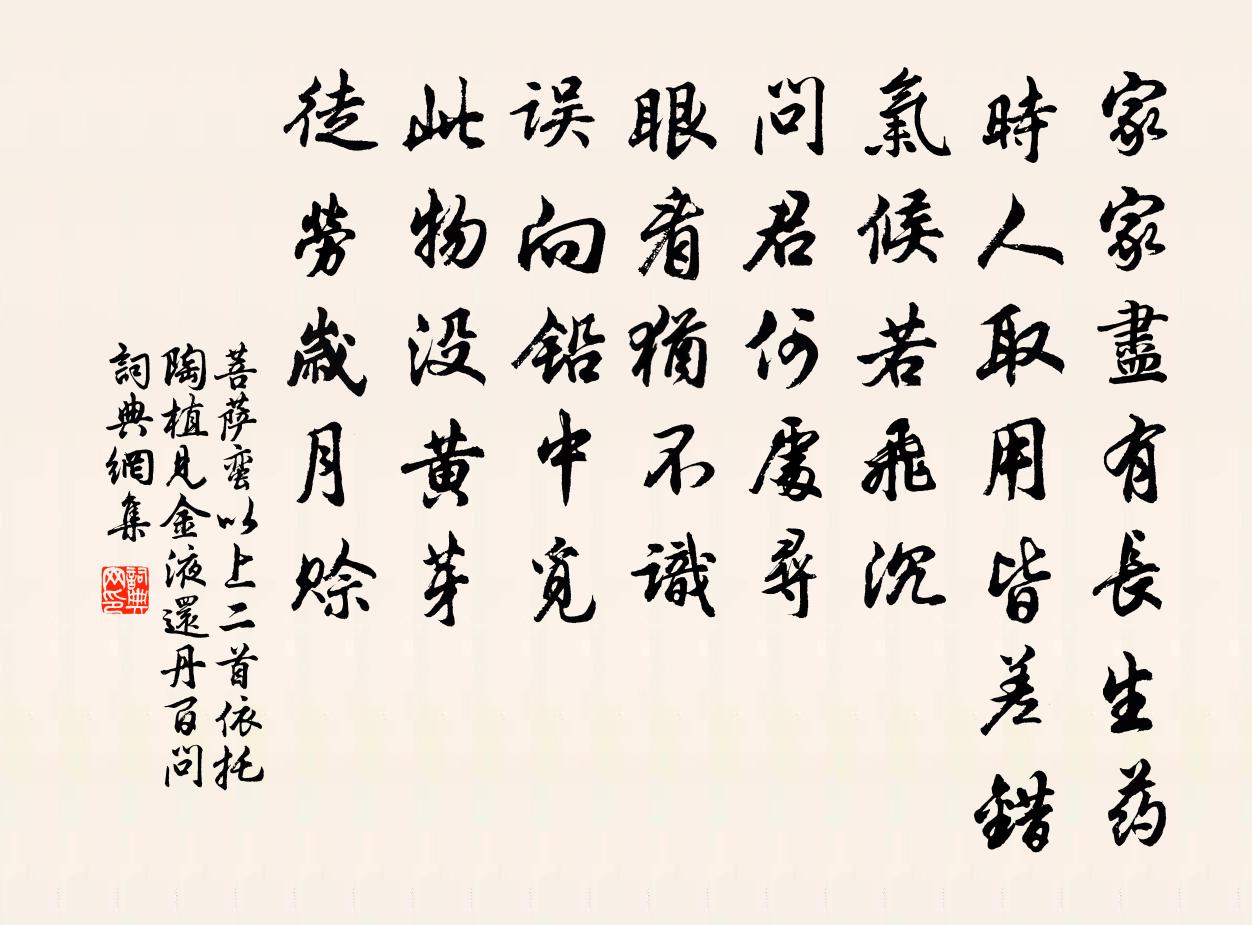 家家盡有長生药
時人取用皆差錯
氣候若飛沉
問君何處尋
眼看猶不識
误向鉛中覓
此物没黄芽
徒勞歲月赊
菩萨蛮以上二首依托
陶植見金液還丹百問
詞典網集
詞典
网印